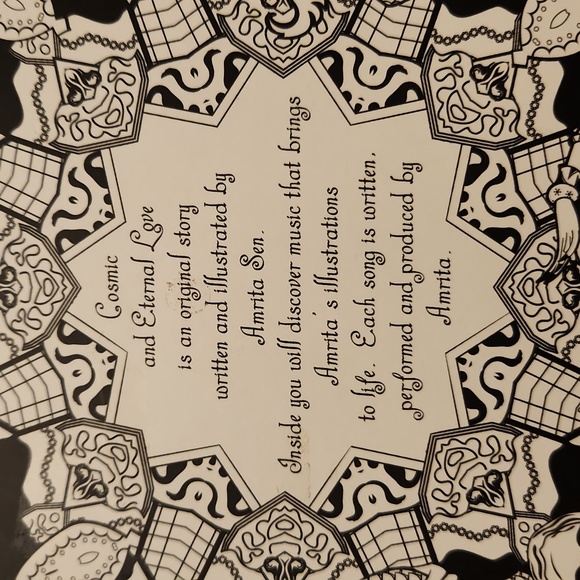 Cosmic
and Eternal Love
is an original story
written and illustrated by
Amrita Sen.
Inside you will discover music that brings
Amrita's illustrations
to life. Each song is written,
performed and produced by
Amrita.